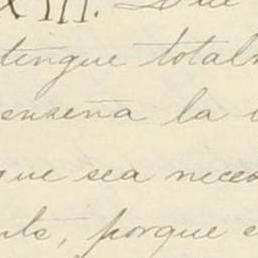 XIII. Que
tingue total
enseña la
que sea neces
nte, porque e